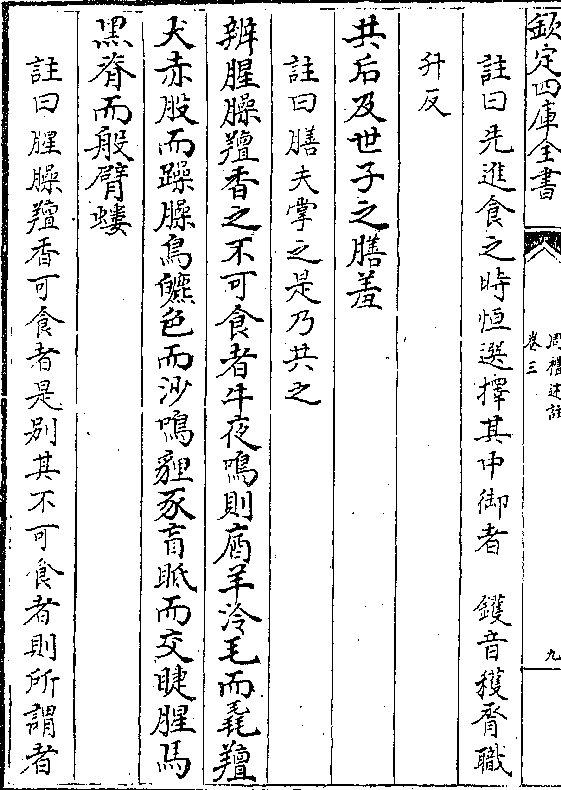 欽定四庫全書
周禮述註
卷三
九
註曰先進食之時恒選擇其中御者　鑊音穫胥職
升反
共后及世子之膳羞
註曰膳夫掌之是乃共之
辨腥臊羶香之不可食者牛夜鳴則庮羊泠毛而毳羶
犬赤股而躁臊鳥皫色而沙鳴貍豕盲眡而交睫腥馬
黑脊而般臂螻
註曰腥臊羶香可食者是别其不可食者則所謂者